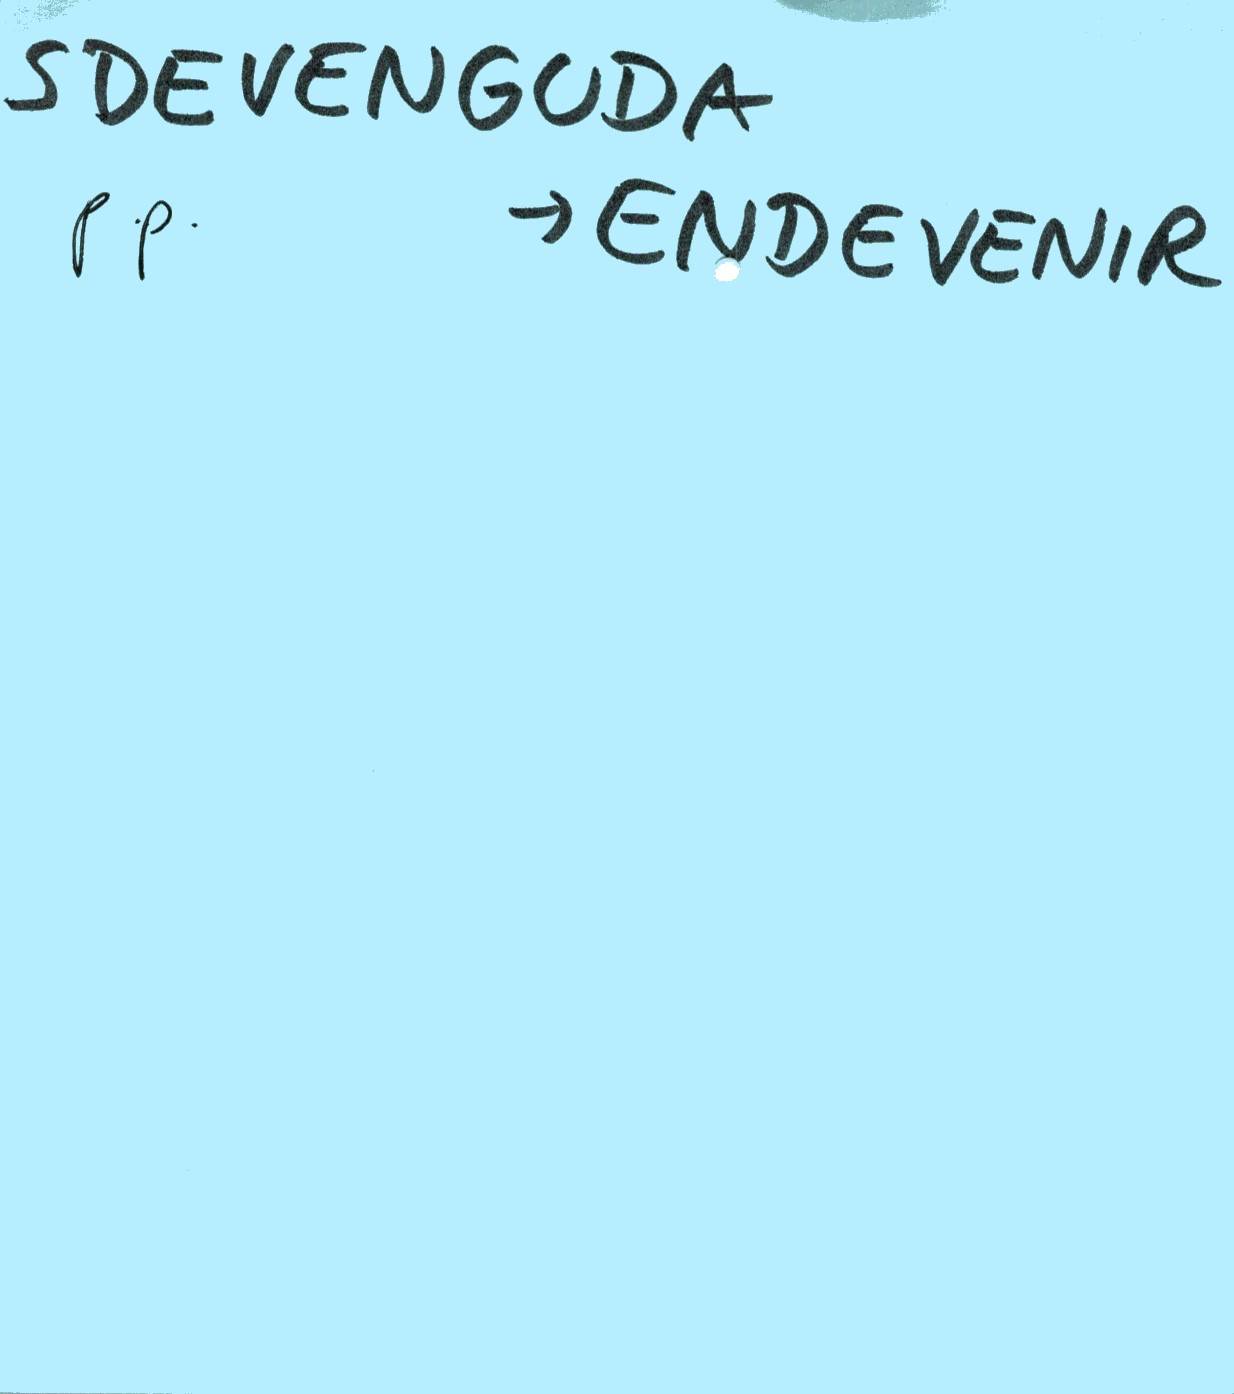 SDEVENGUDA
p.p. → ENDEVENIR